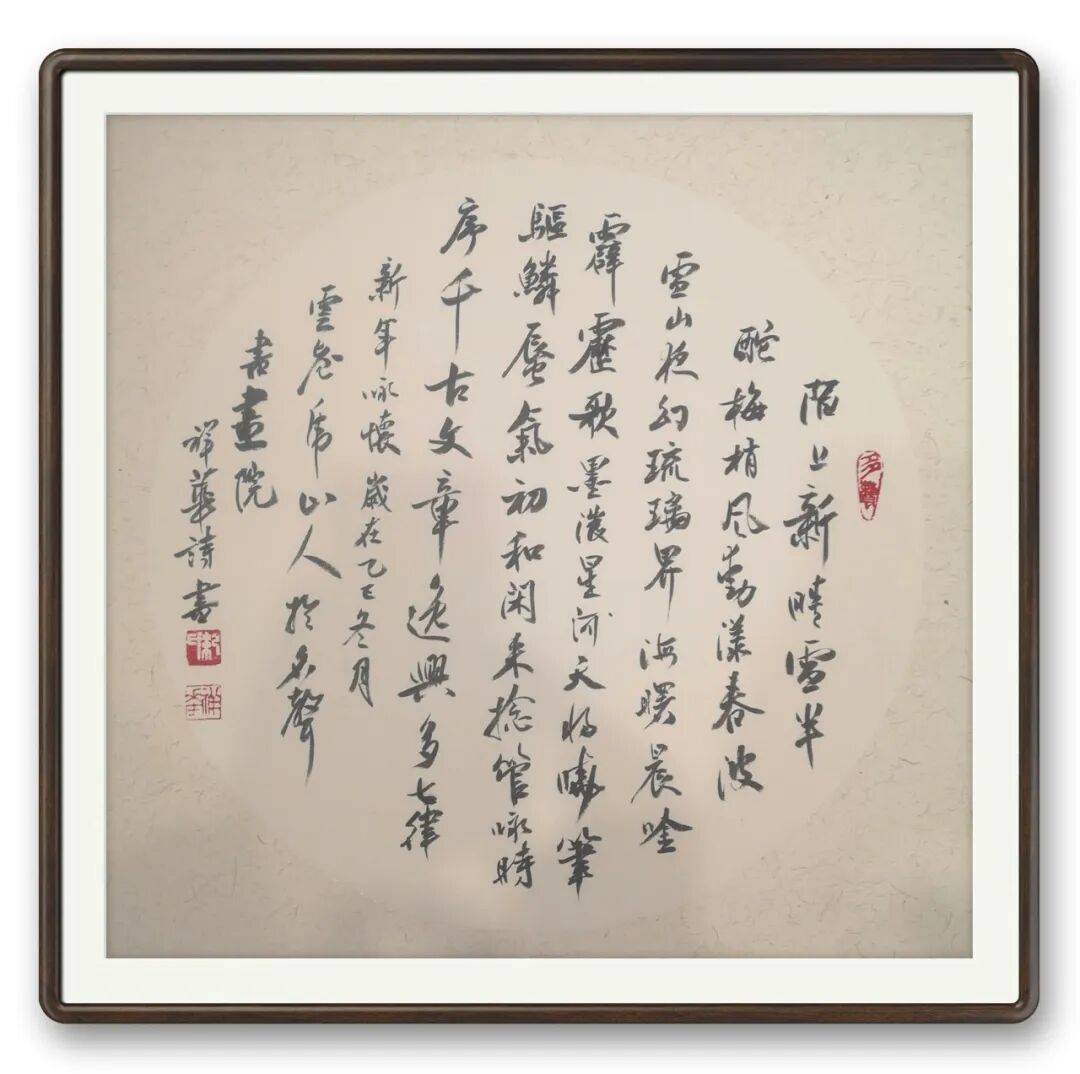 陌上新晴雪半
酡梅梢風動漾春波
雪山夜幻琉璃界海曙晨唫
霹靂歌墨潑星河天嘯筆
驅鱗蜃氣初和閑來捻管咏時
序千古文章逸興多七律
新年咏懷歲在乙巳冬月
雲山人於聲
書畫院
祥華詩書